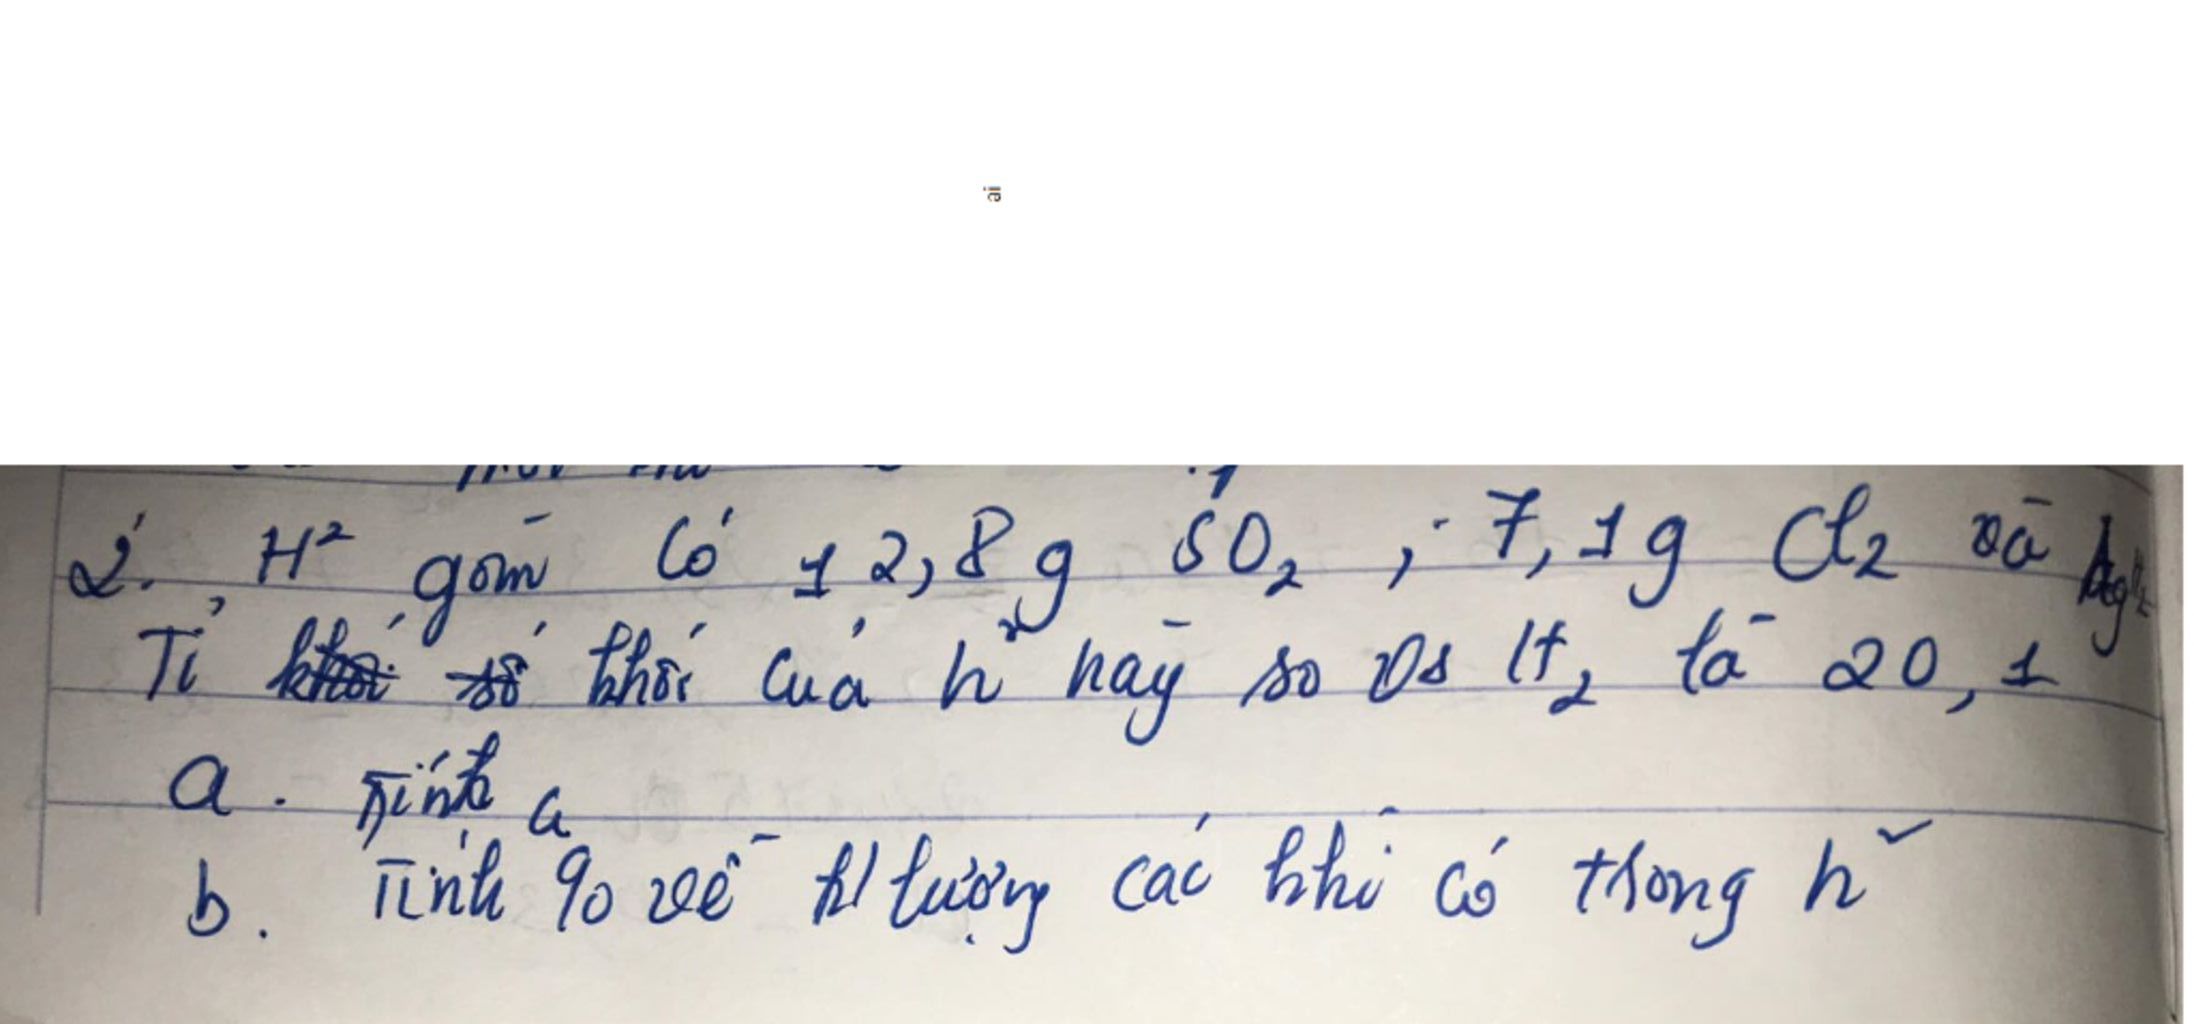 2. H² gồm có 12,8g SO₂ ; 7,1g Cl₂ và
Tỉ khối của h² này so vs H₂ là 20,1
a. Tính a
b. Tính % về k/lượng các khí có trong h²